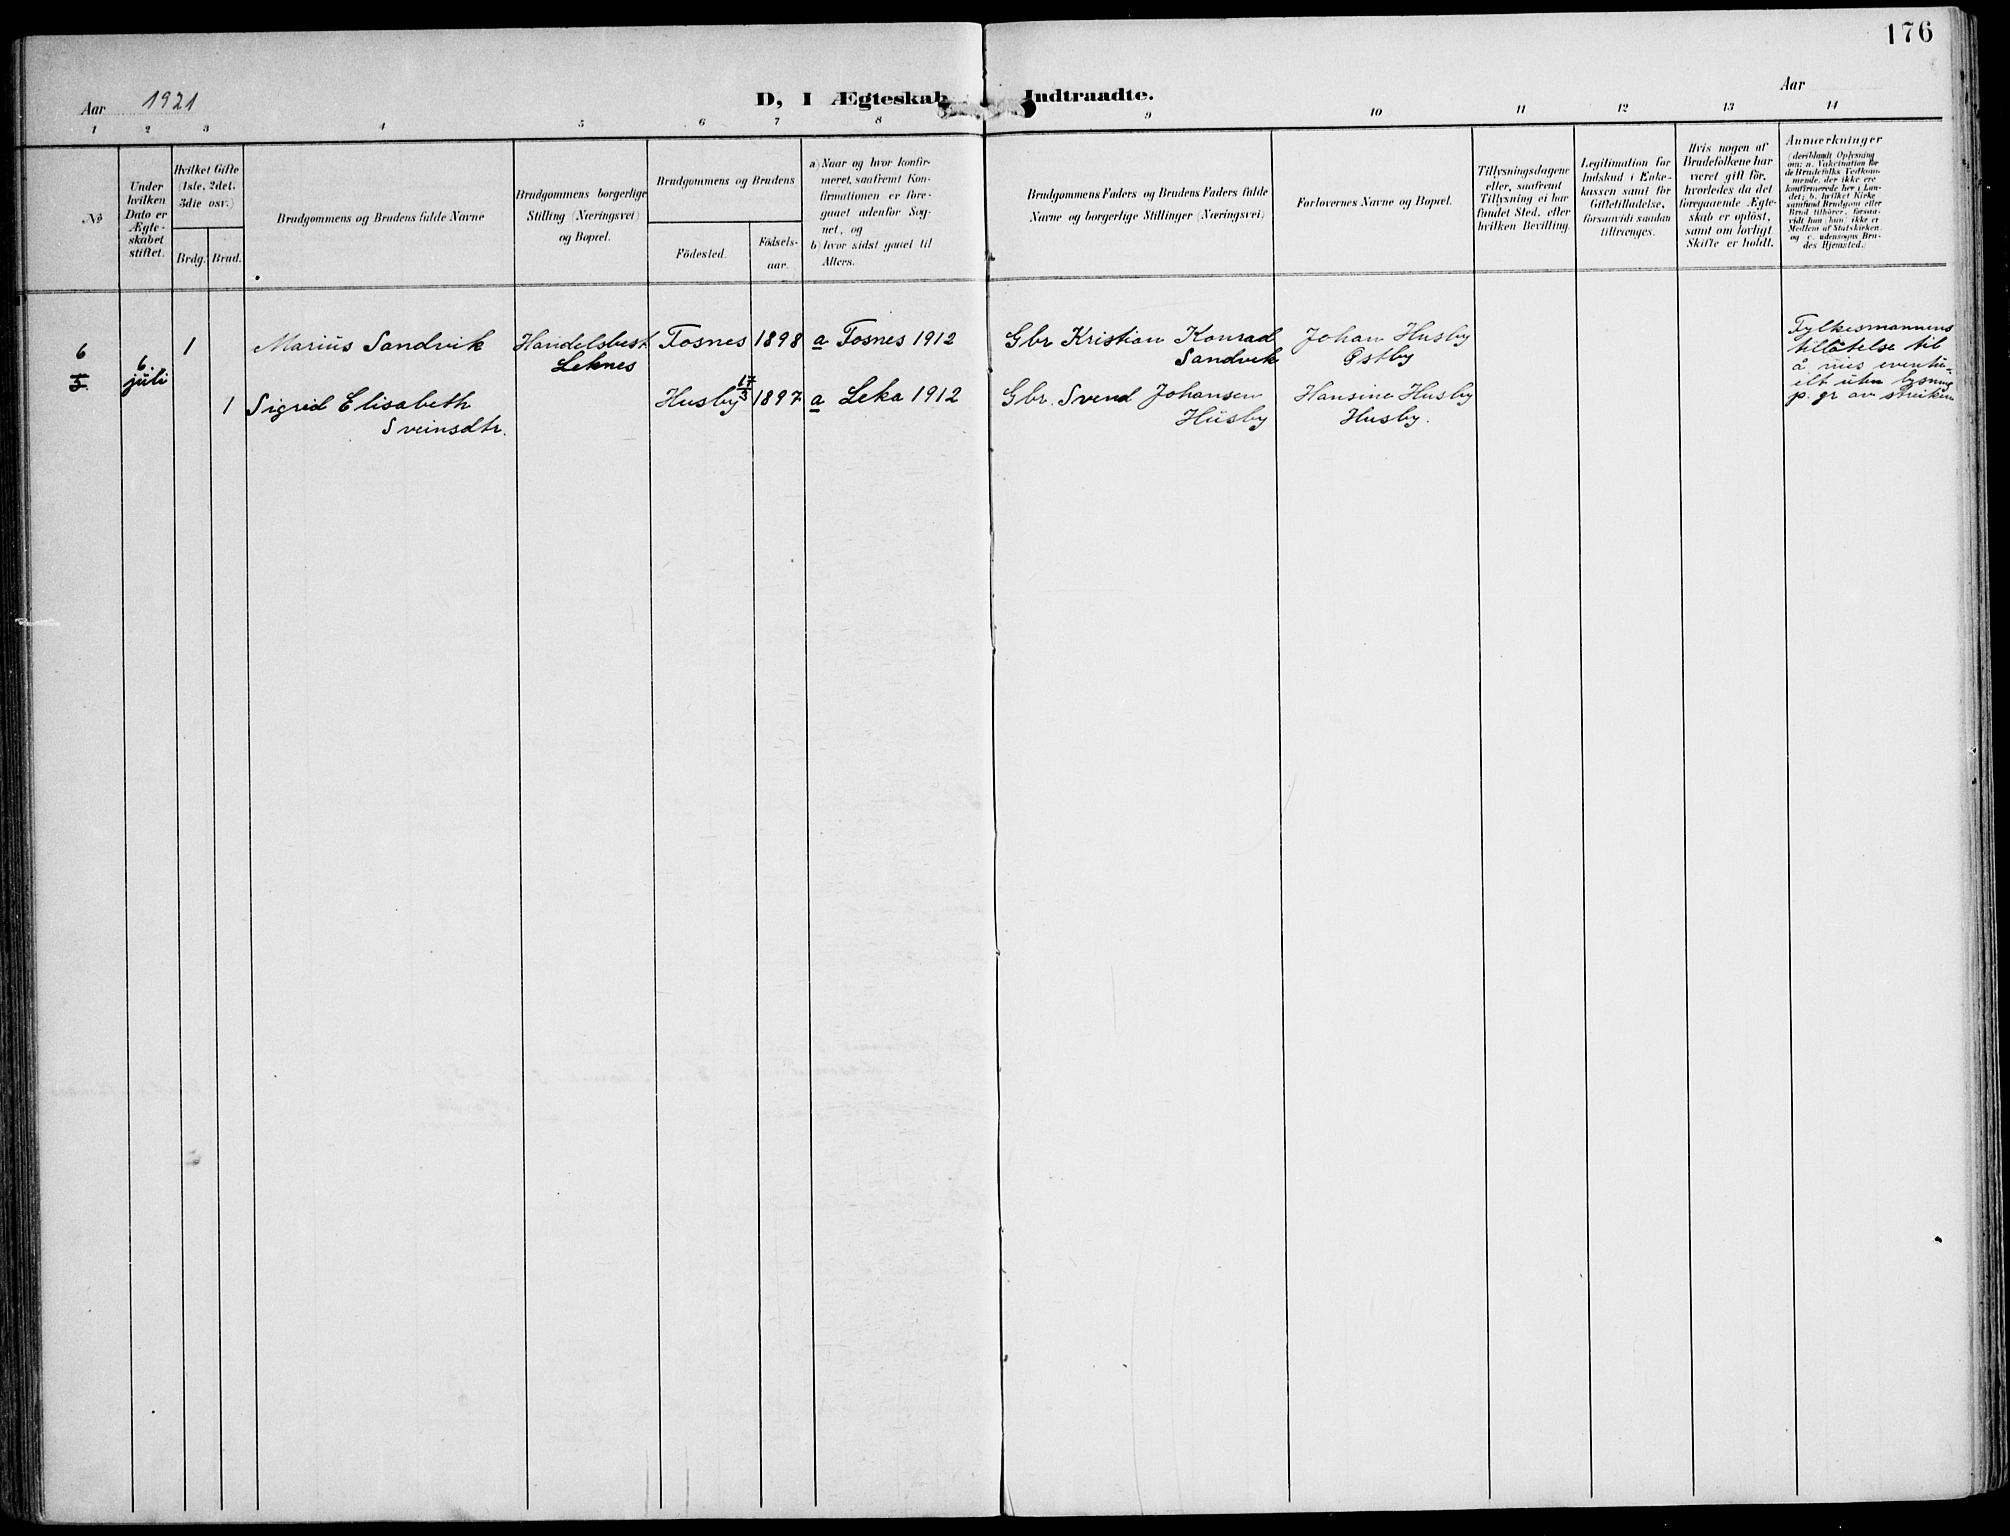 176
Aar 1921
D, I Ægteskab Indtraadte.
Aar
1 2 3 4 5 6 7 8 9 10 11 12 13 14
№
Under
hvilken
Dato er
Ægte-
skabet
stiftet.
Hvilket Gifte
(1ste, 2det,
3die osv.)
Brdg. Brud.
Brudgommens og Brudens fulde Navne
Brudgommens borgerlige
Stilling (Næringsvei)
og Bopæl.
Brudgommens og Brudens
Födested.
Födsels-
aar.
a) Naar og hvor konfir-
meret, saafremt Kon-
firmationen er fore-
gaaet udenfor Sog-
net, og
b) hvor sidst gaaet til
Alters.
Brudgommens Faders og Brudens Faders fulde
Navne og borgerlige Stillinger (Næringsvei)
Forlovernes Navne og Bopæl.
Tillysningsdagene
eller, saafremt
Tillysning ei har
fundet Sted, efter
hvilken Bevilling.
Legitimation for
Indskud i Enke-
kassen samt for
Giftetilladelse,
forsaavidt saadan
tiltrænges.
Hvis nogen af
Brudefolkene har
været gift för,
hvorledes da det
foregaaende Ægte-
skab er oplöst,
samt om lovligt
Skifte er holdt.
Anmærkninger
(deriblandt Oplysning
om: a. Vakcination for
de Brudefolks Vedkom-
mende, der ikke ere
konfirmerede her i Lan-
det; b. hvilket Kirke-
samfund Brudgom eller
Brud tilhörer, forsaa-
vidt han (hun) ikke er
Medlem af Statskirken,
og c. udensogns Bru-
des Hjemsted.)
6 6. 1 Marius Sandvik Handelsbest. Fosnes 1898 a Fosnes 1912 Gbr Kristian Konrad Johan Husby
5. juli Leknes Sandvik Østby
1 Sigrid Elisabeth Husby 17/3 1897 a Leka 1912 Gbr. Svend Johansen Hansine Husby
Sveinsdtr. Husby Husby.
Fylkesmannens
tillåtelse til
å vies eventu-
elt uten lysning
p. gr av streiken